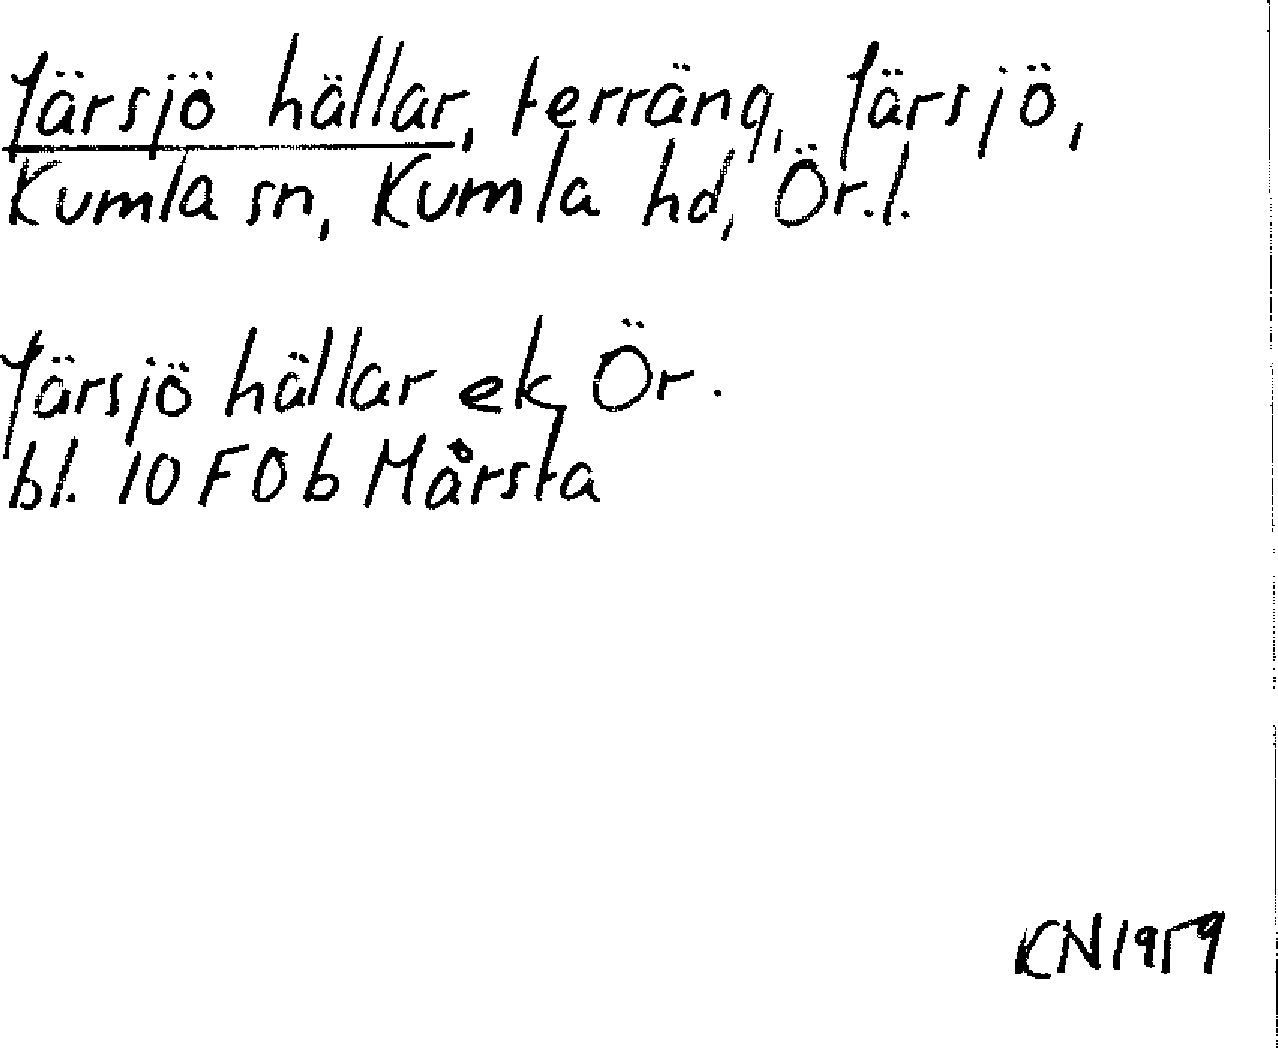 Järsjö hällar, terräng, Järsjö,
Kumla sn, Kumla hd, Ör.l.
Järsjö hällar ek Ör.
bl. 10 F 0 b Mårsta
KN 1959